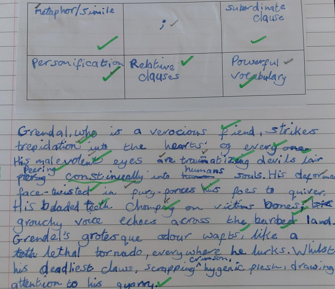 metaphor/simile
; -
subordinate clause
Personification
Relative clauses
Powerful vocabulary
Grendal, who is a verocious fiend, strikes
trepidation into the hearts of every one.
His malevolent eyes are traumatizing devils lair
Peering constineually into humans souls. His
face-twisted in fury-porces his foes to quiver.
His bladded teeth on victims bones, his
grouchy voice echoes across the barbed land.
Grendal's grotesque odour wafts, like a
lethal tornado, everywhere he lurks. Whilst
his deadliest claws, scrapping crimson, hygenic flesh, drawing
attention to his quarry.